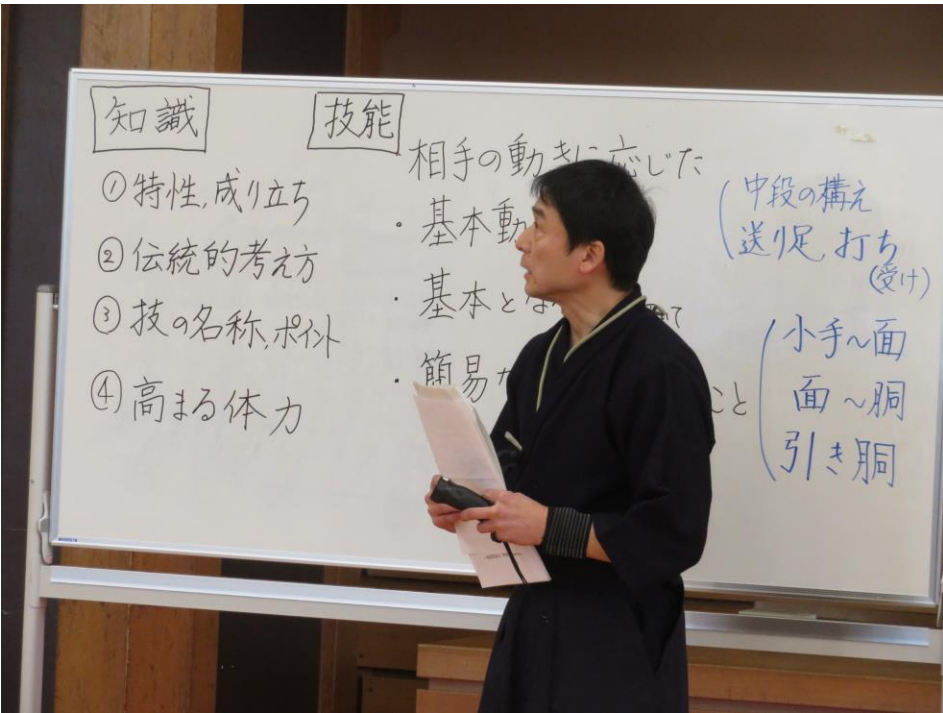 知識
①特性,成り立ち
②伝統的考え方
③技の名称,ポイント
④高まる体力
技能
相手の動きに応じた
・基本動
・基本とな
・簡易な
こと
中段の構え
送り足,打ち
(受け)
小手～面
面～胴
引き胴